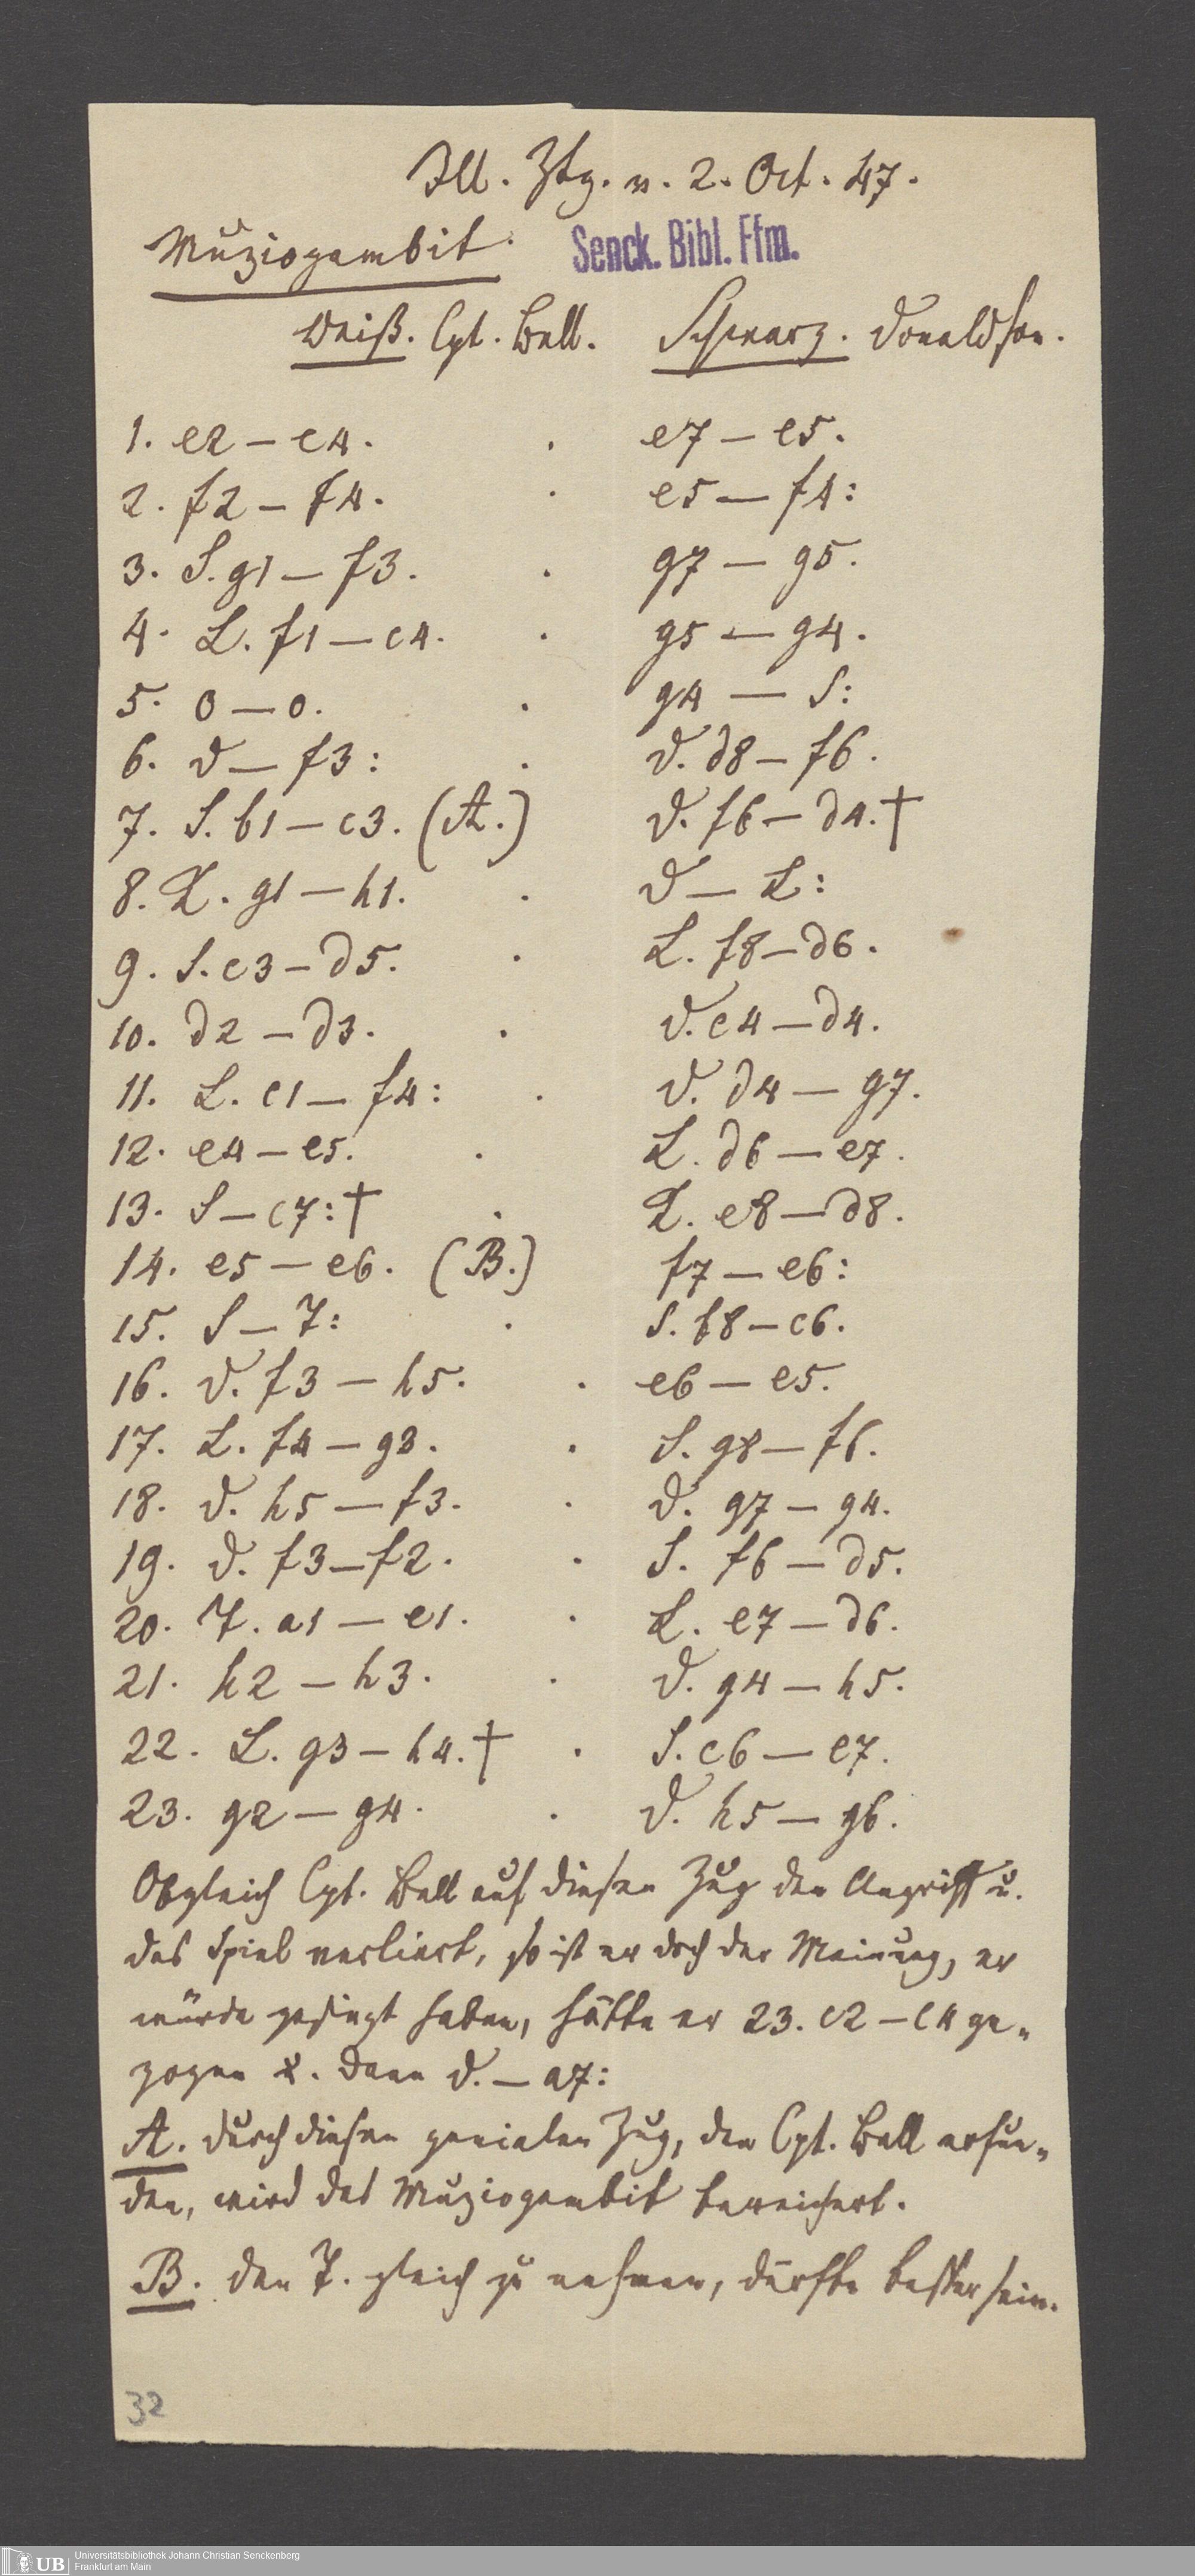 Ill. Ztg. v. 2. Oct. 47.
Muziogambit.
Senck. Bibl. Ffm.
Weiß. Cpt. Ball. Schwarz. Donaldson.
1. e2 — e4. . e7 — e5.
2. f2 — f4. . e5 — f4:
3. S. g1 — f3. . g7 — g5.
4. L. f1 — c4. . g5 — g4.
5. 0 — 0. . g4 — S:
6. D — f3: . D. d8 — f6.
7. S. b1 — c3. (A.) D. f6 — d4. †
8. K. g1 — h1. . D — L:
9. S. c3 — d5. . L. f8 — d6.
10. d2 — d3. . D. c4 — d4.
11. L. c1 — f4: . D. d4 — g7.
12. e4 — e5. . L. d6 — e7.
13. S — c7: † . K. e8 — d8.
14. e5 — e6. (B.) f7 — e6:
15. S — T: . S. b8 — c6.
16. D. f3 — h5. . e6 — e5.
17. L. f4 — g3. . S. g8 — f6.
18. D. h5 — f3. . D. g7 — g4.
19. D. f3 — f2. . S. f6 — d5.
20. T. a1 — e1. . L. e7 — d6.
21. h2 — h3. . D. g4 — h5.
22. L. g3 — h4. † . S. c6 — e7.
23. g2 — g4. . D. h5 — g6.
Obgleich Cpt. Ball auf diesen Zug den Angriff u.
das Spiel verliert, so ist er doch der Meinung, er
würde gesiegt haben, hätte er 23. c2 — c4 ge-
zogen u. dann D. — a7:
A. Durch diesen genialen Zug, den Cpt. Ball erfun-
den, wird das Muziogambit bereichert.
B. Den T. gleich zu nehmen, dürfte besser sein.
32
UB Universitätsbibliothek Johann Christian Senckenberg
Frankfurt am Main